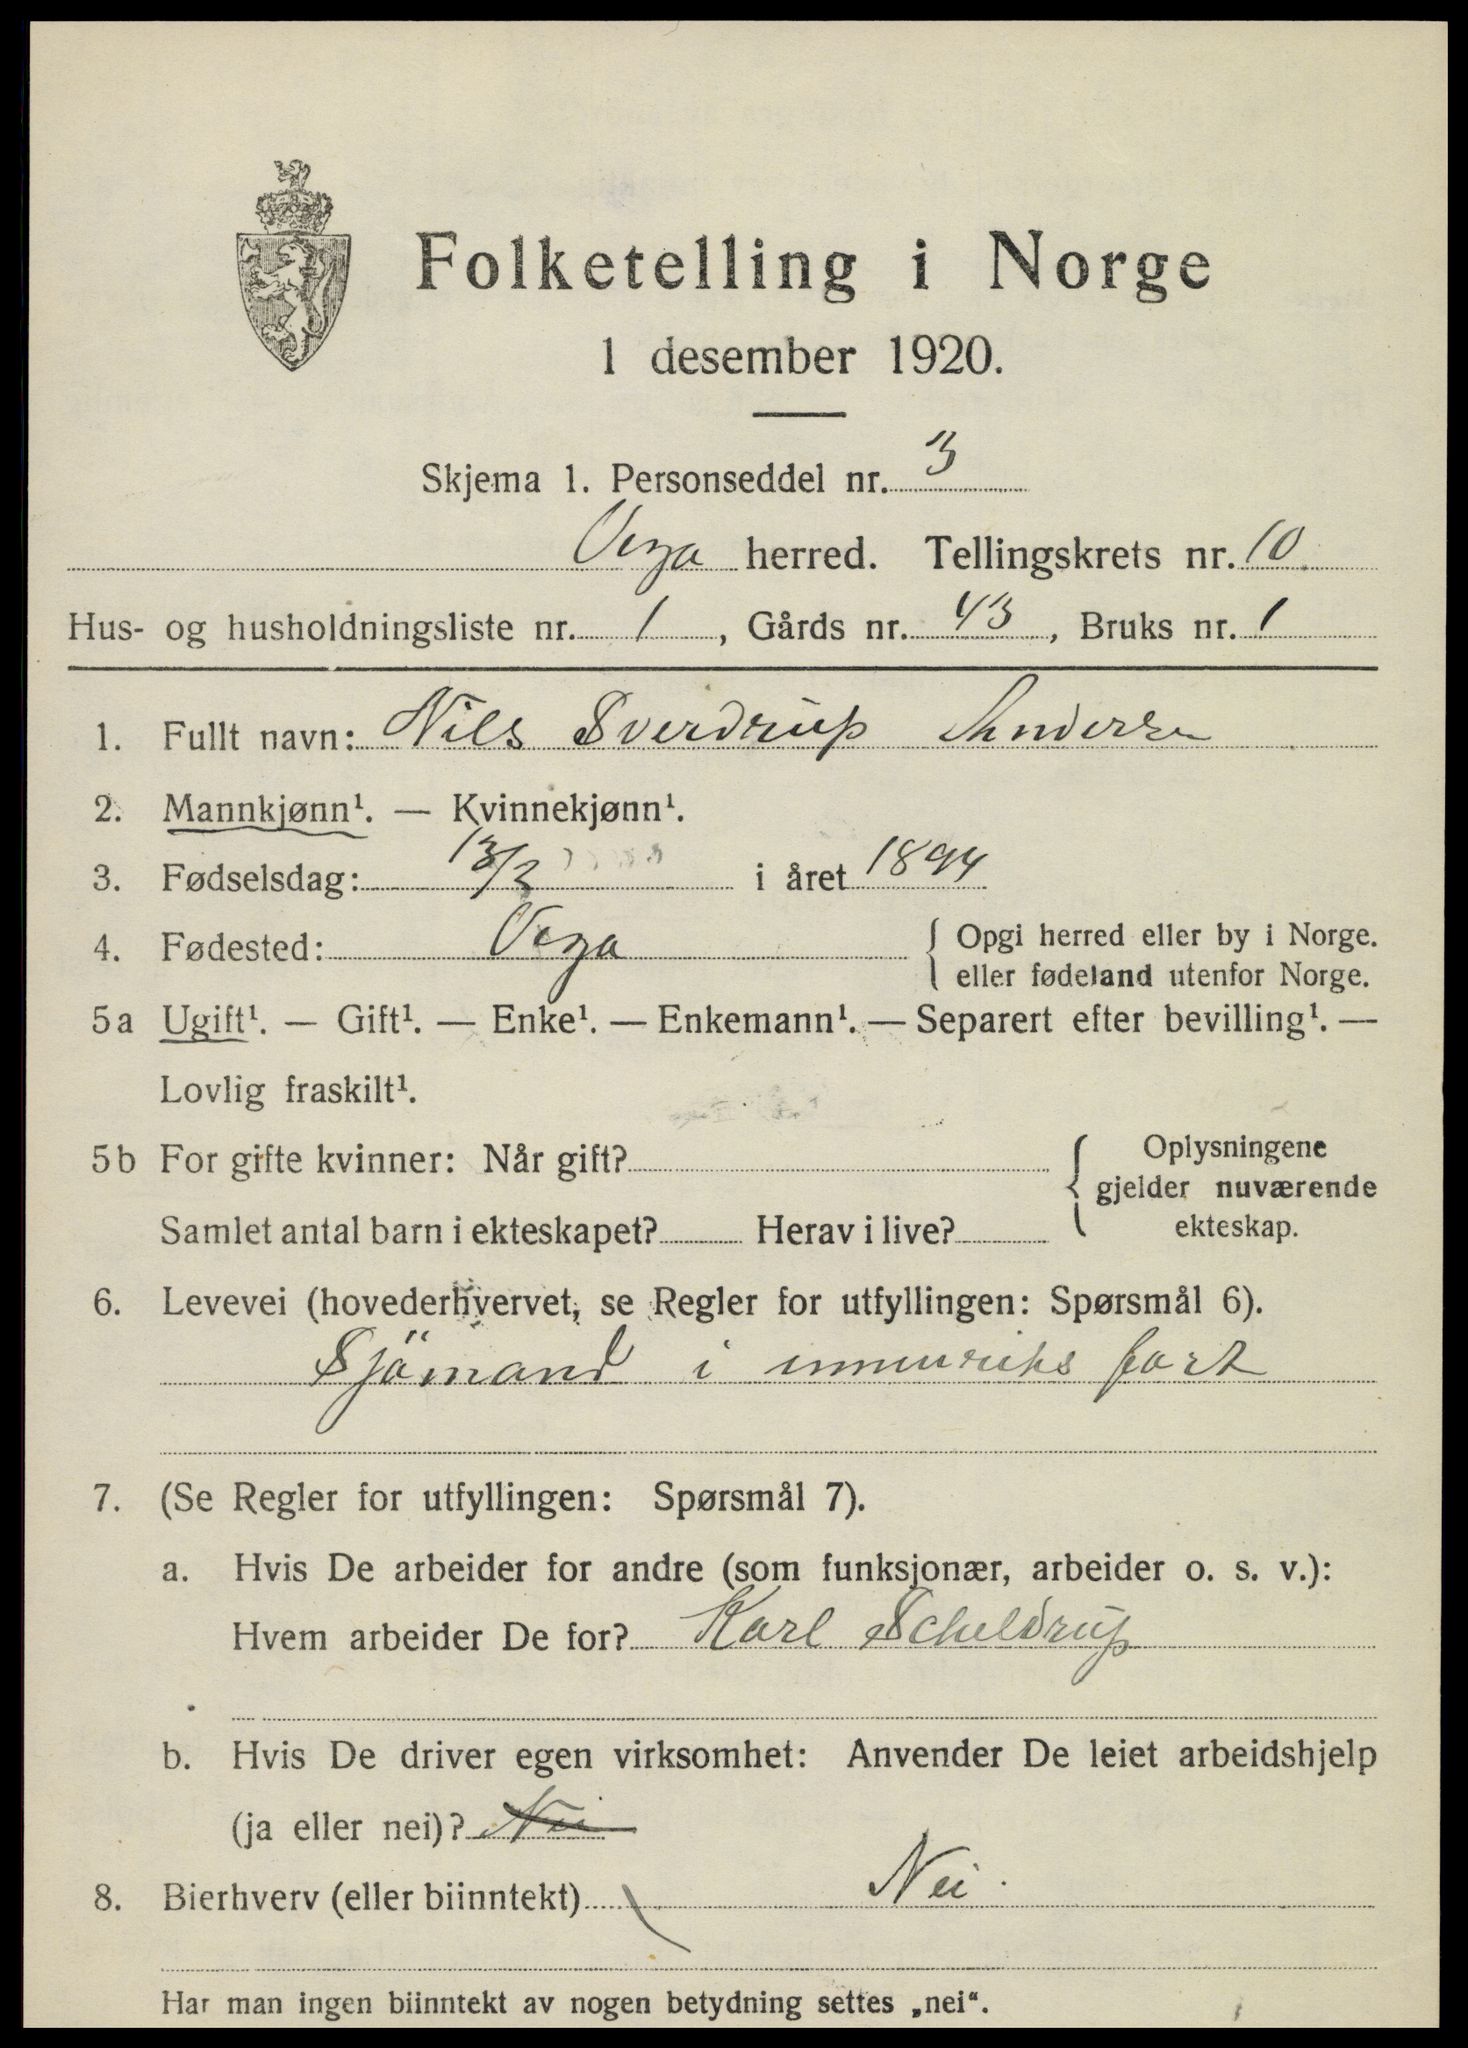 Folketelling i Norge
1 desember 1920.
Skjema 1. Personseddel nr. 3
Vega herred. Tellingskrets nr. 10
Hus- og husholdningsliste nr. 1, Gårds nr. 43, Bruks nr. 1
1. Fullt navn: Nils Sverdrup Andersen
2. Mannkjønn¹. — Kvinnekjønn¹.
3. Fødselsdag: 13/2 i året 1894
4. Fødested: Vega { Opgi herred eller by i Norge.
eller fødeland utenfor Norge.
5a Ugift¹. — Gift¹. — Enke¹. — Enkemann¹. — Separert efter bevilling¹. —
Lovlig fraskilt¹.
5b For gifte kvinner: Når gift? { Oplysningene
gjelder nuværende
Samlet antal barn i ekteskapet? Herav i live? ekteskap.
6. Levevei (hovederhvervet, se Regler for utfyllingen: Spørsmål 6).
Sjömand i innenriks fart
7. (Se Regler for utfyllingen: Spørsmål 7).
a. Hvis De arbeider for andre (som funksjonær, arbeider o. s. v.):
Hvem arbeider De for? Karl Scheldrup
b. Hvis De driver egen virksomhet: Anvender De leiet arbeidshjelp
(ja eller nei)? Nei
8. Bierhverv (eller biinntekt) Nei.
Har man ingen biinntekt av nogen betydning settes „nei“.